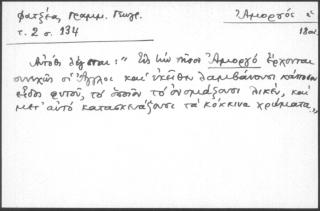 Φατζέας Γραμμ. Γεωγρ. Ἀμοργός
τ. 2 σ. 134 18αι.
Αὐτόθι λέγεται: " Εἰς τὴν νῆσον Ἀμοργὸ ἔρχονται
συνεχῶς οἱ Ἄγγλοι καὶ ἐκεῖθεν λαμβάνουσι κάποιον
εἶδος φυτοῦ, τὸ ὁποῖον τὸ ὀνομάζουσι λικέν, καὶ
μετ' αὐτὸ κατασκευάζουσι τὰ κόκκινα χρώματα„